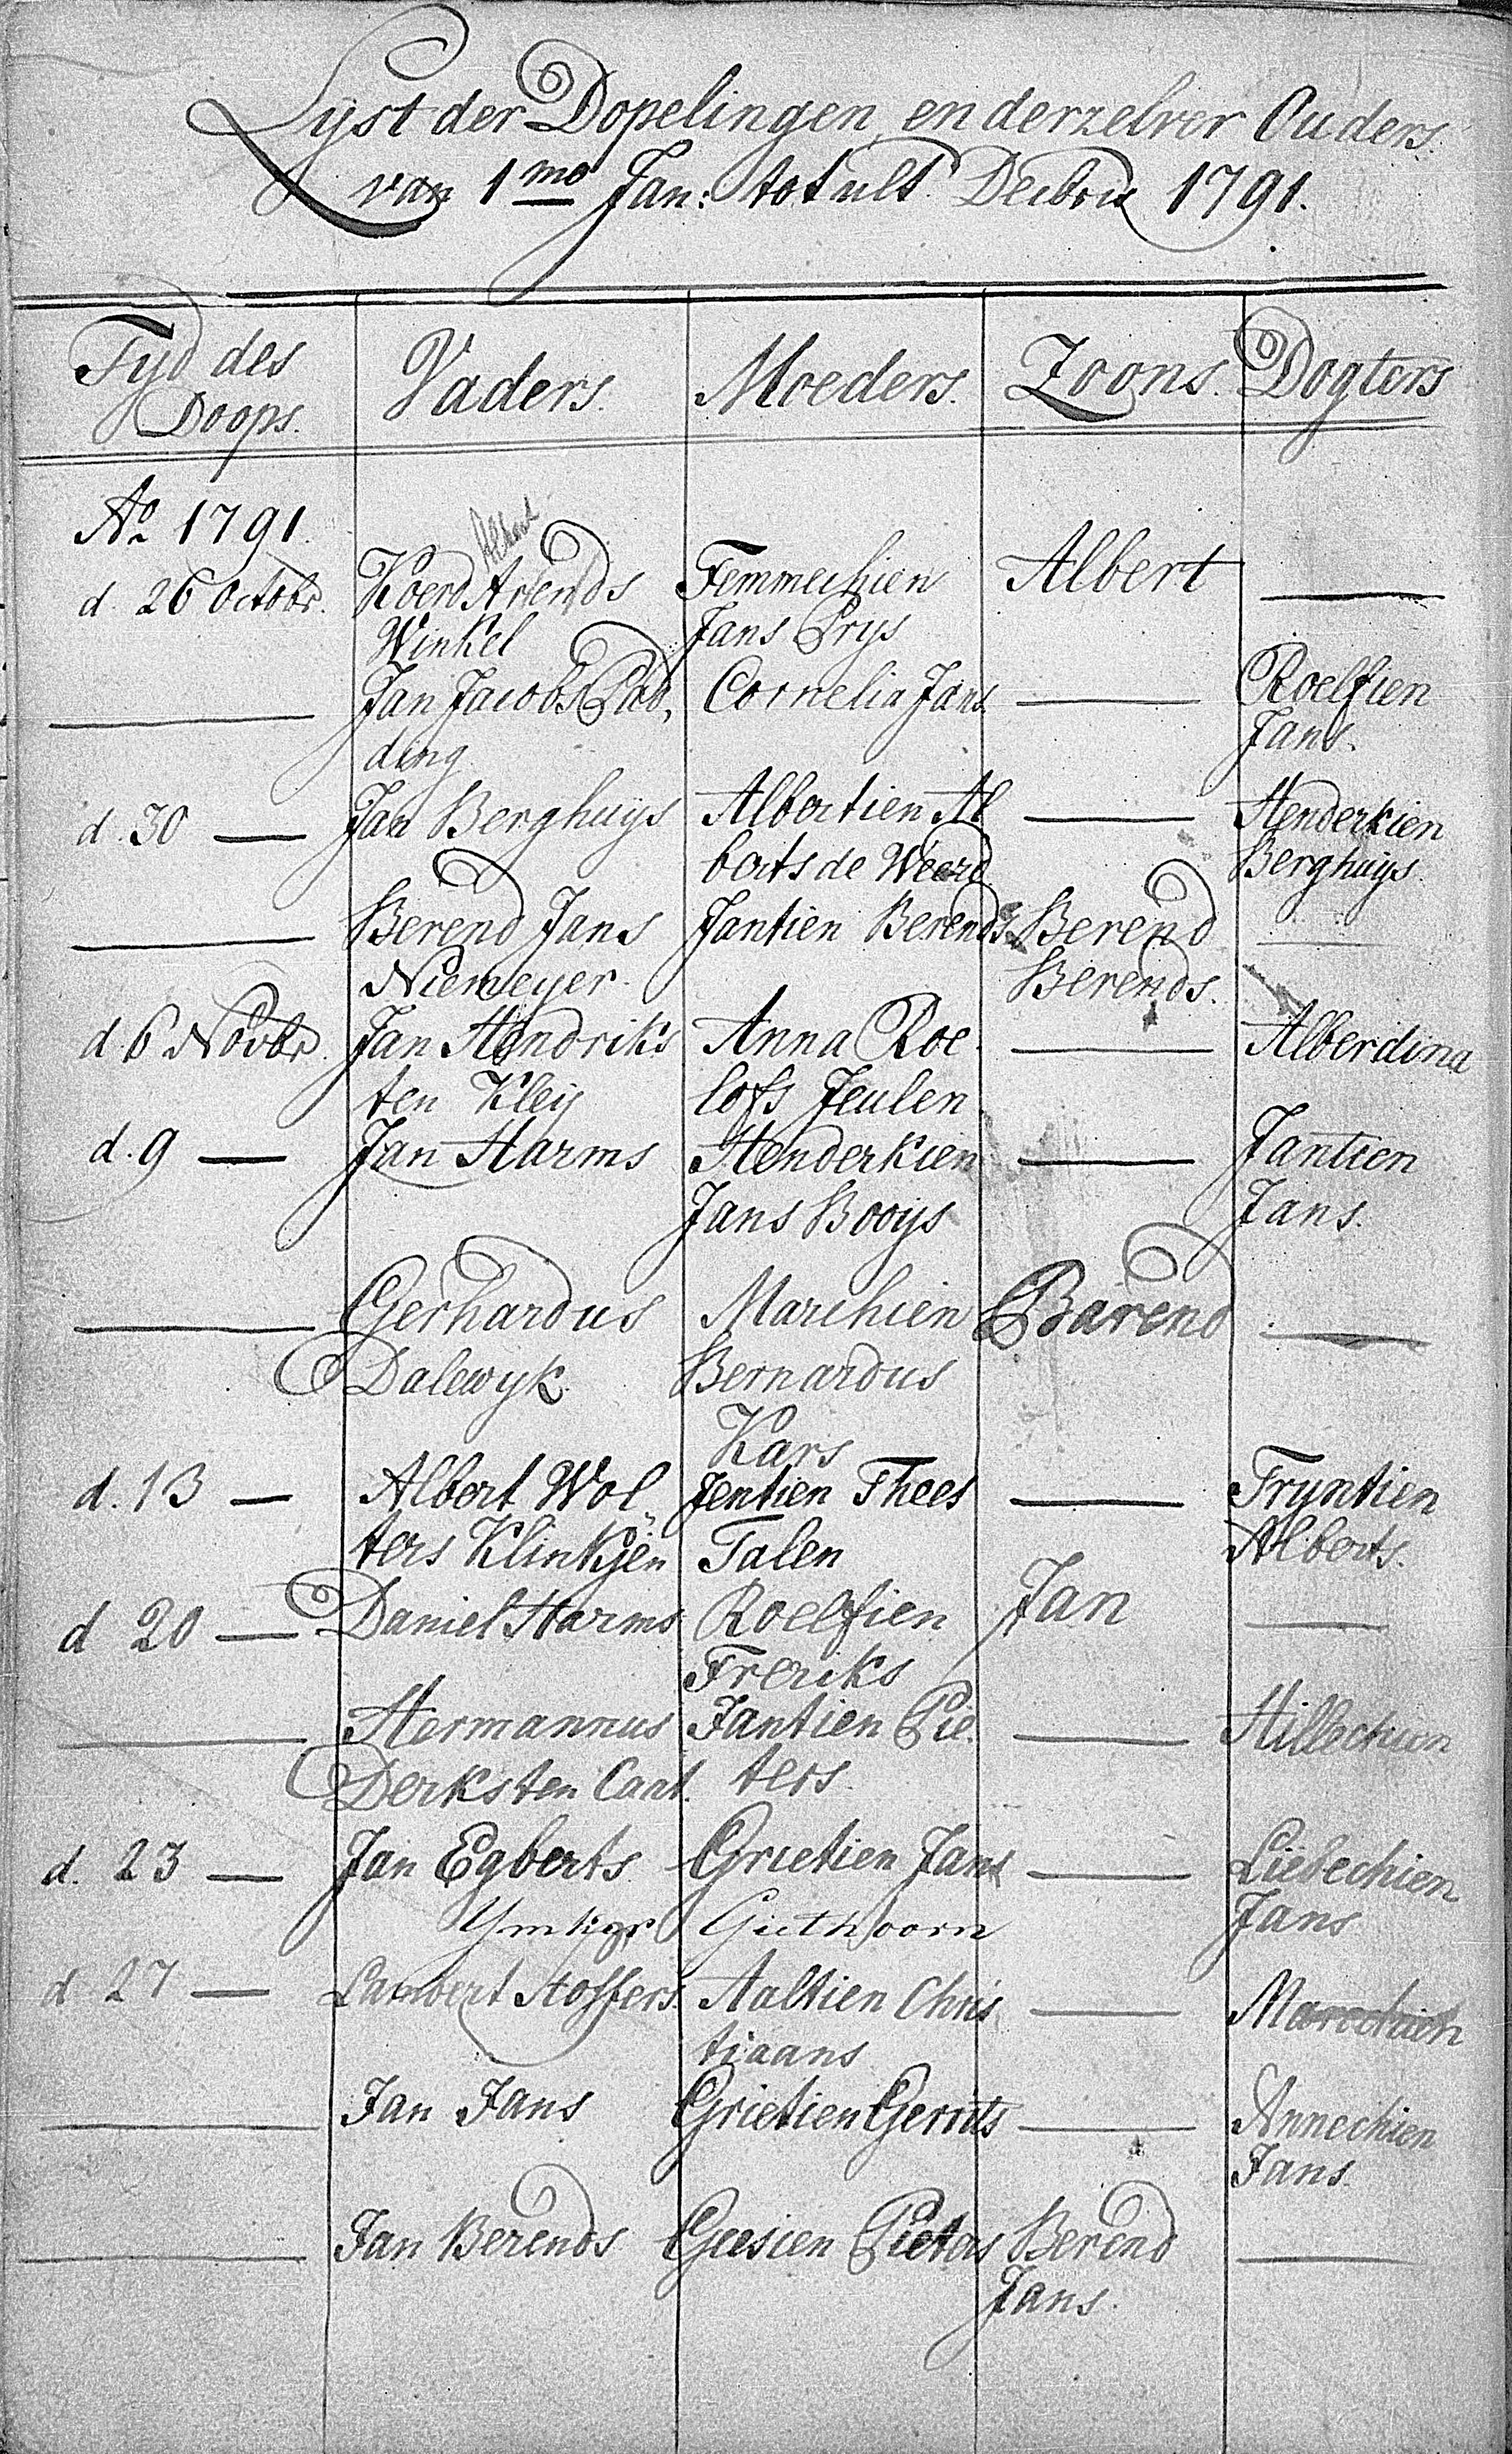 Lyst der Dopelingen en derzelver Ouders
van 1mo Jan: tot ult. Decbris 1791.
Tyd des Doops.
Vaders.
Moeders.
Zoons.
Dogters
Ao 1791.
d. 26 Octobr. Koerd Arends Femmechien Albert —
Winkel Jans Prys
— Jan Jacobs Pad, Cornelia Jans — Roelfien
ding Jans.
d. 30 — Jan Berghuys Albertien Al — Henderkien
berts de Weerd Berghuys.
— Berend Jans Jantien Berends Berend —
Niemeyer. Berends.
d. 6 Novbr. Jan Hendriks Anna Roe — Alberdina
ten Kley lofs Jeulen
d. 9 — Jan Harms Henderkien — Jantien
Jans Booys Jans.
— Gerhardus Marchien Barend —
Dalewyk Bernardus
Kars
d. 13 — Albert Wol Jentien Thees — Tryntien
ters Klinkjen Talen Alberts.
d 20 — Daniel Harms Roelfien Jan —
Freriks
— Hermannus Jantien Pie — Hillechien
Derks ten Cart. ters.
d. 23 — Jan Egberts Grietien Jans — Liebechien
Ymker Giethoorn Jans
d 27 — Lambert Stoffers. Aaltien Chris — Marchien
tiaans
— Jan Jans Grietien Gerrits — Annechien
Jans.
— Jan Berends Geesien Pieters Berend —
Jans.